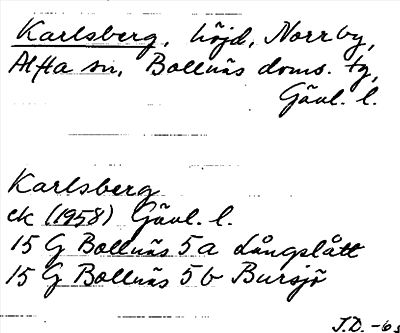 Karlsberg, höjd, Norrby,
Alfta sn, Bollnäs doms. tg,
Gävl. l.
Karlsberg
ek (1958) Gävl. l.
15 G Bollnäs 5a Långslått
15 G Bollnäs 5b Bursjö
J.D. -63